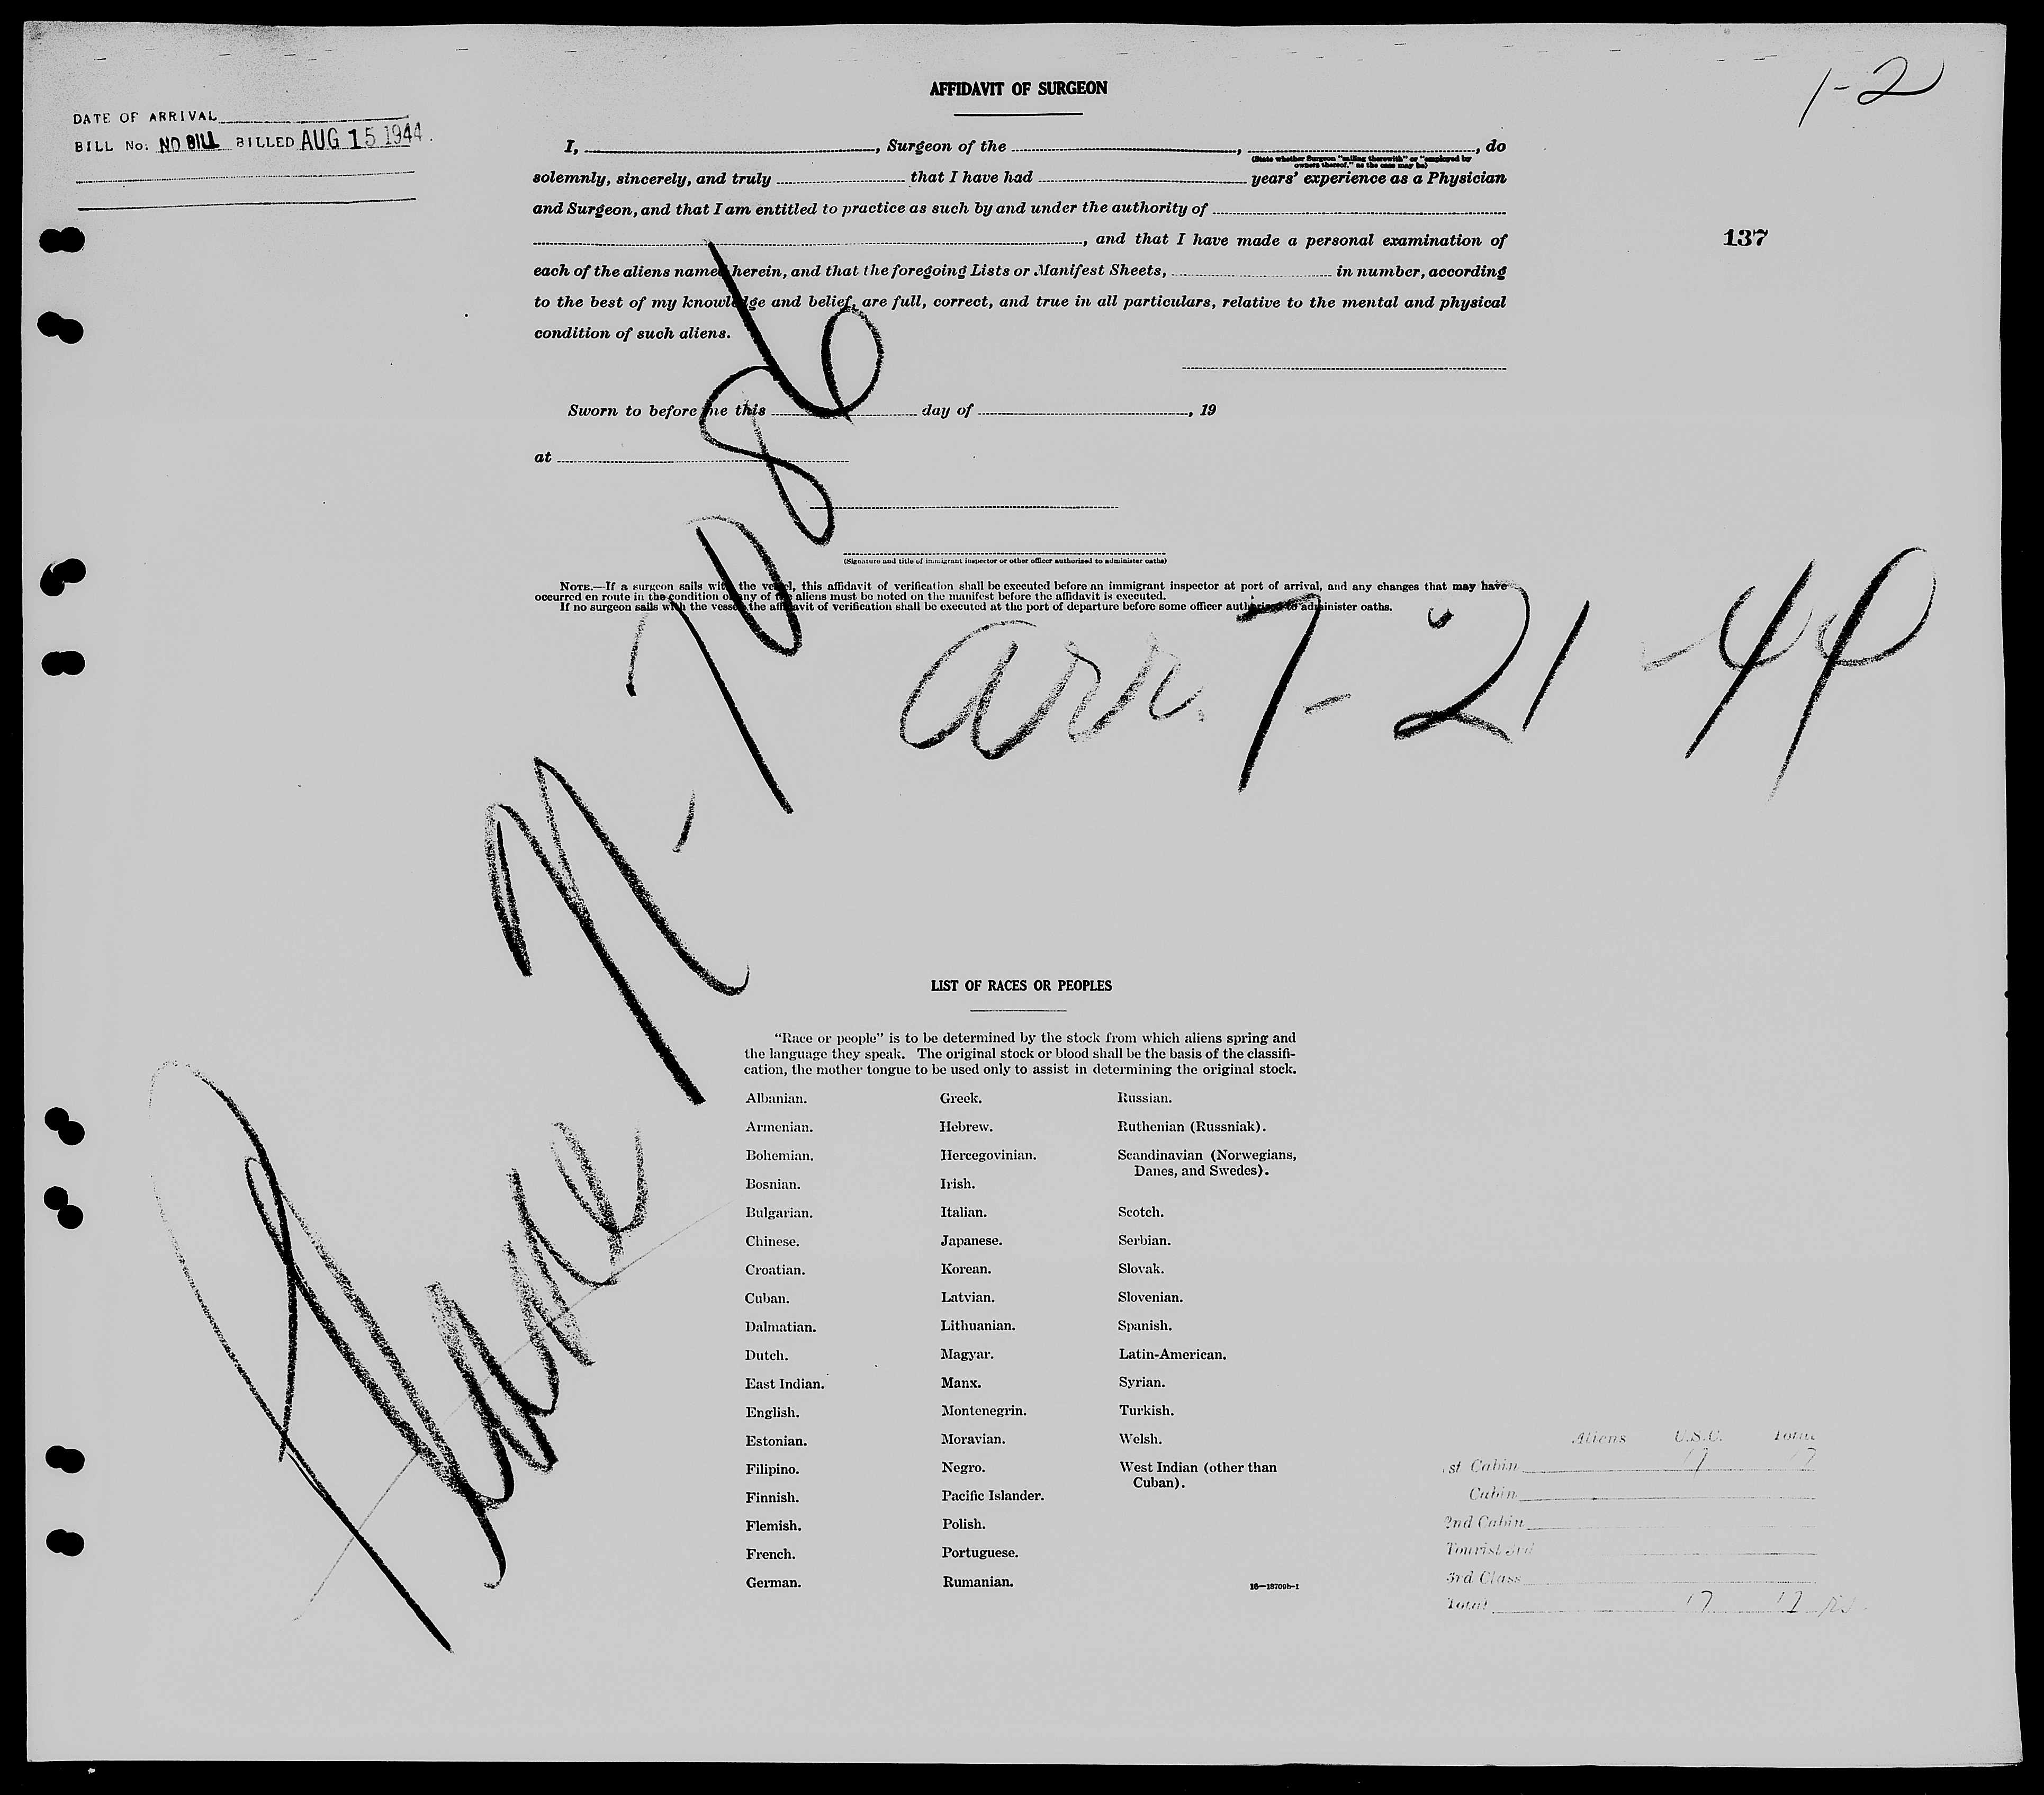 1-2
DATE OF ARRIVAL
BILL No: NO BILL BILLED AUG 15 1944
AFFIDAVIT OF SURGEON
I, , Surgeon of the , , do
(State whether Surgeon "sailing therewith" or "employed by
owners thereof," as the case may be)
solemnly, sincerely, and truly that I have had years' experience as a Physician
and Surgeon, and that I am entitled to practice as such by and under the authority of
, and that I have made a personal examination of
137
each of the aliens named herein, and that the foregoing Lists or Manifest Sheets, in number, according
to the best of my knowledge and belief, are full, correct, and true in all particulars, relative to the mental and physical
condition of such aliens.
Sworn to before me this day of , 19
at
(Signature and title of immigrant inspector or other officer authorized to administer oaths)
NOTE.—If a surgeon sails with the vessel, this affidavit of verification shall be executed before an immigrant inspector at port of arrival, and any changes that may have
occurred en route in the condition of any of the aliens must be noted on the manifest before the affidavit is executed.
If no surgeon sails with the vessel, the affidavit of verification shall be executed at the port of departure before some officer authorized to administer oaths.
Plane N-7086
arr. 7-21-44
LIST OF RACES OR PEOPLES
"Race or people" is to be determined by the stock from which aliens spring and
the language they speak. The original stock or blood shall be the basis of the classifi-
cation, the mother tongue to be used only to assist in determining the original stock.
Albanian.
Armenian.
Bohemian.
Bosnian.
Bulgarian.
Chinese.
Croatian.
Cuban.
Dalmatian.
Dutch.
East Indian.
English.
Estonian.
Filipino.
Finnish.
Flemish.
French.
German.
Greek.
Hebrew.
Hercegovinian.
Irish.
Italian.
Japanese.
Korean.
Latvian.
Lithuanian.
Magyar.
Manx.
Montenegrin.
Moravian.
Negro.
Pacific Islander.
Polish.
Portuguese.
Rumanian.
Russian.
Ruthenian (Russniak).
Scandinavian (Norwegians,
Danes, and Swedes).
Scotch.
Serbian.
Slovak.
Slovenian.
Spanish.
Latin-American.
Syrian.
Turkish.
Welsh.
West Indian (other than
Cuban).
16—18709b-1
Aliens U.S.C. Total
1st Cabin
Cabin
2nd Cabin
Tourist 3rd
3rd Class
Total 17 17